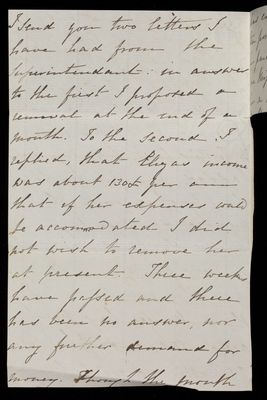 I send you two letters I
have had from the
Superintendant: in answer
to the first I proposed a
removal at the end of a
month. To the second I
replied, that Elizas income
was about 130£ per ann
that if her expenses could
be accommodated I did
not wish to remove her
at present. Three weeks
have passed and there
has been no answer, nor
any further demand for
money. Though the month